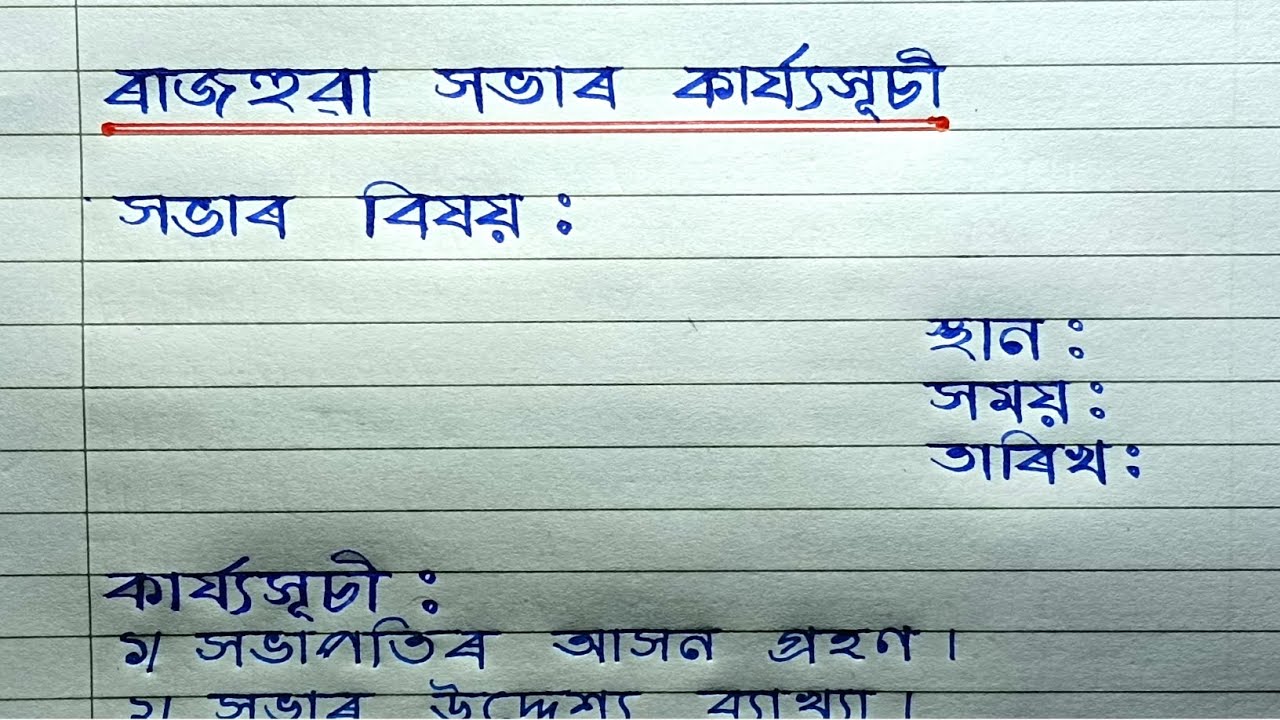 ৰাজহুৱা সভাৰ কাৰ্য্যসূচী
সভাৰ বিষয় :
স্থান :
সময় :
তাৰিখ :
কাৰ্য্যসূচী :
১/ সভাপতিৰ আসন গ্ৰহণ ।
২/ সভাৰ উদ্দেশ্য ব্যাখ্যা ।